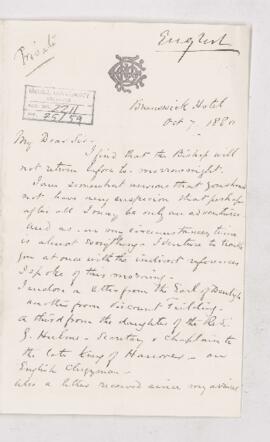 English
Private
2211
25/59
Brunswick Hotel
Oct 7 1880
My Dear Sir.
I find that the Bishop will
not return before to-morrow night.
I am somewhat anxious that you should
not have any suspicion that perhaps
after all I may be only an adventurer
and as in my circumstances, time
is almost everything I venture to trouble
you at once with the indirect references
I spoke of this morning.
I enclose a letter from the Earl of Denbigh
another from Viscount Feilding.
a third from the daughter of the Rev.
G. Hulme - Secretary & Chaplain to
the late King of Hanover - an
English Clergyman -
Also a letter received since my